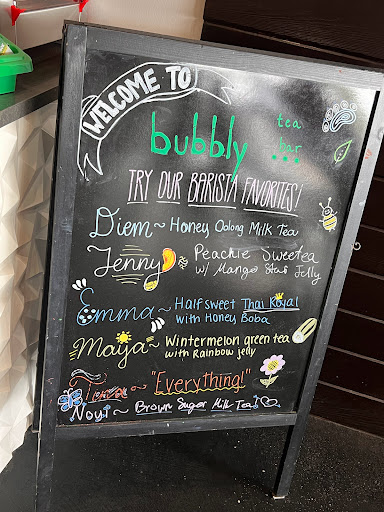 WELCOME TO
bubbly tea bar
TRY OUR BARISTA FAVORITES!
Diem ~ Honey Oolong Milk Tea
Jenny ~ Peachie Sweetea
w/ Mango Star Jelly
Emma ~ Half sweet Thai Royal
with Honey Boba
Maya ~ Wintermelon green tea
with Rainbow jelly
~ "Everything!"
Nayi ~ Brown Sugar Milk Tea!